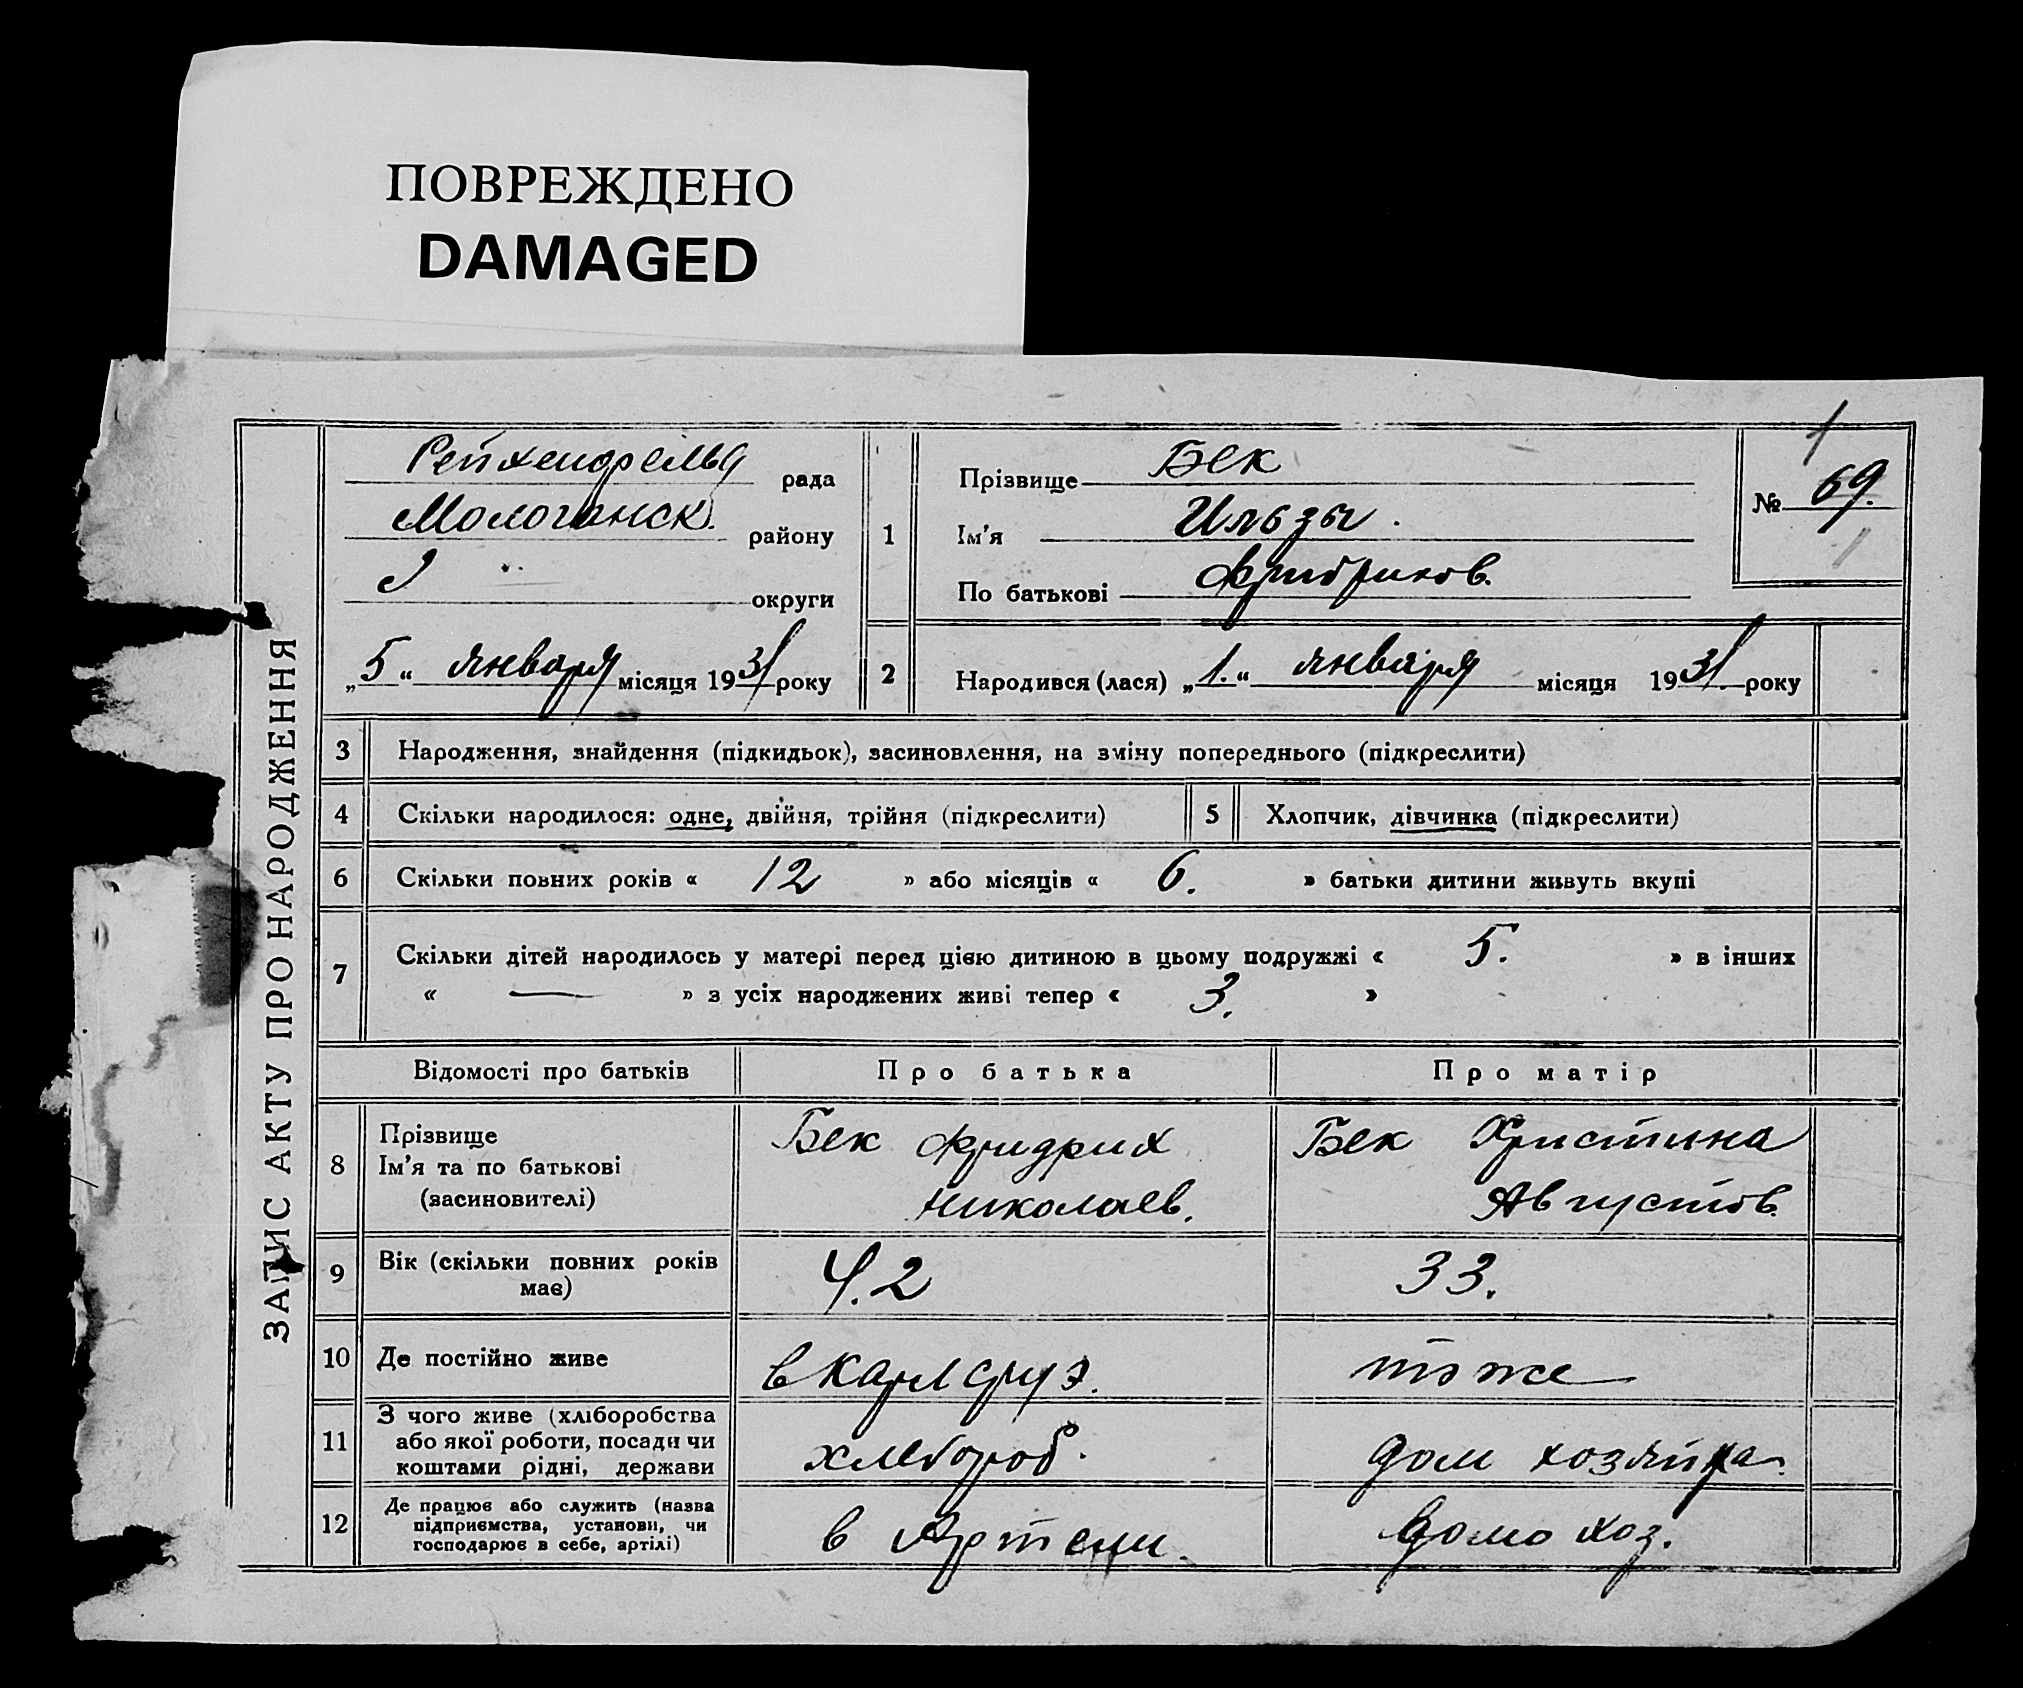 ПОВРЕЖДЕНО
DAMAGED
ЗАПИС АКТУ ПРО НАРОДЖЕННЯ
Рейхенфельд рада
Молочанск. району
округи
„5“ января місяця 1931 року
1 Прізвище Бек
Ім'я Ильзы.
По батькові Фридриков.
№ 69.
2 Народився (лася) „1.“ января місяця 1931. року
3 Народження, знайдення (підкидьок), засиновлення, на зміну попереднього (підкреслити)
4 Скільки народилося: одне, двійня, трійня (підкреслити) 5 Хлопчик, дівчинка (підкреслити)
6 Скільки повних років « 12 » або місяців « 6. » батьки дитини живуть вкупі
7 Скільки дітей народилось у матері перед цією дитиною в цьому подружжі « 5. » в інших
« — » з усіх народжених живі тепер « 3. »
Відомості про батьків Про батька Про матір
8 Прізвище
Ім'я та по батькові
(засиновителі)
Бек Фридрих
Николаев.
Бек Христина
Августов.
9 Вік (скільки повних років
має)
42
33.
10 Де постійно живе в Карлсруэ. тоже
11 З чого живе (хліборобства
або якої роботи, посади чи
коштами рідні, держави
хлебороб.
дом хозяйка.
12 Де працює або служить (назва
підприємства, установи, чи
господарює в себе, артілі)
в Артели.
домо хоз.